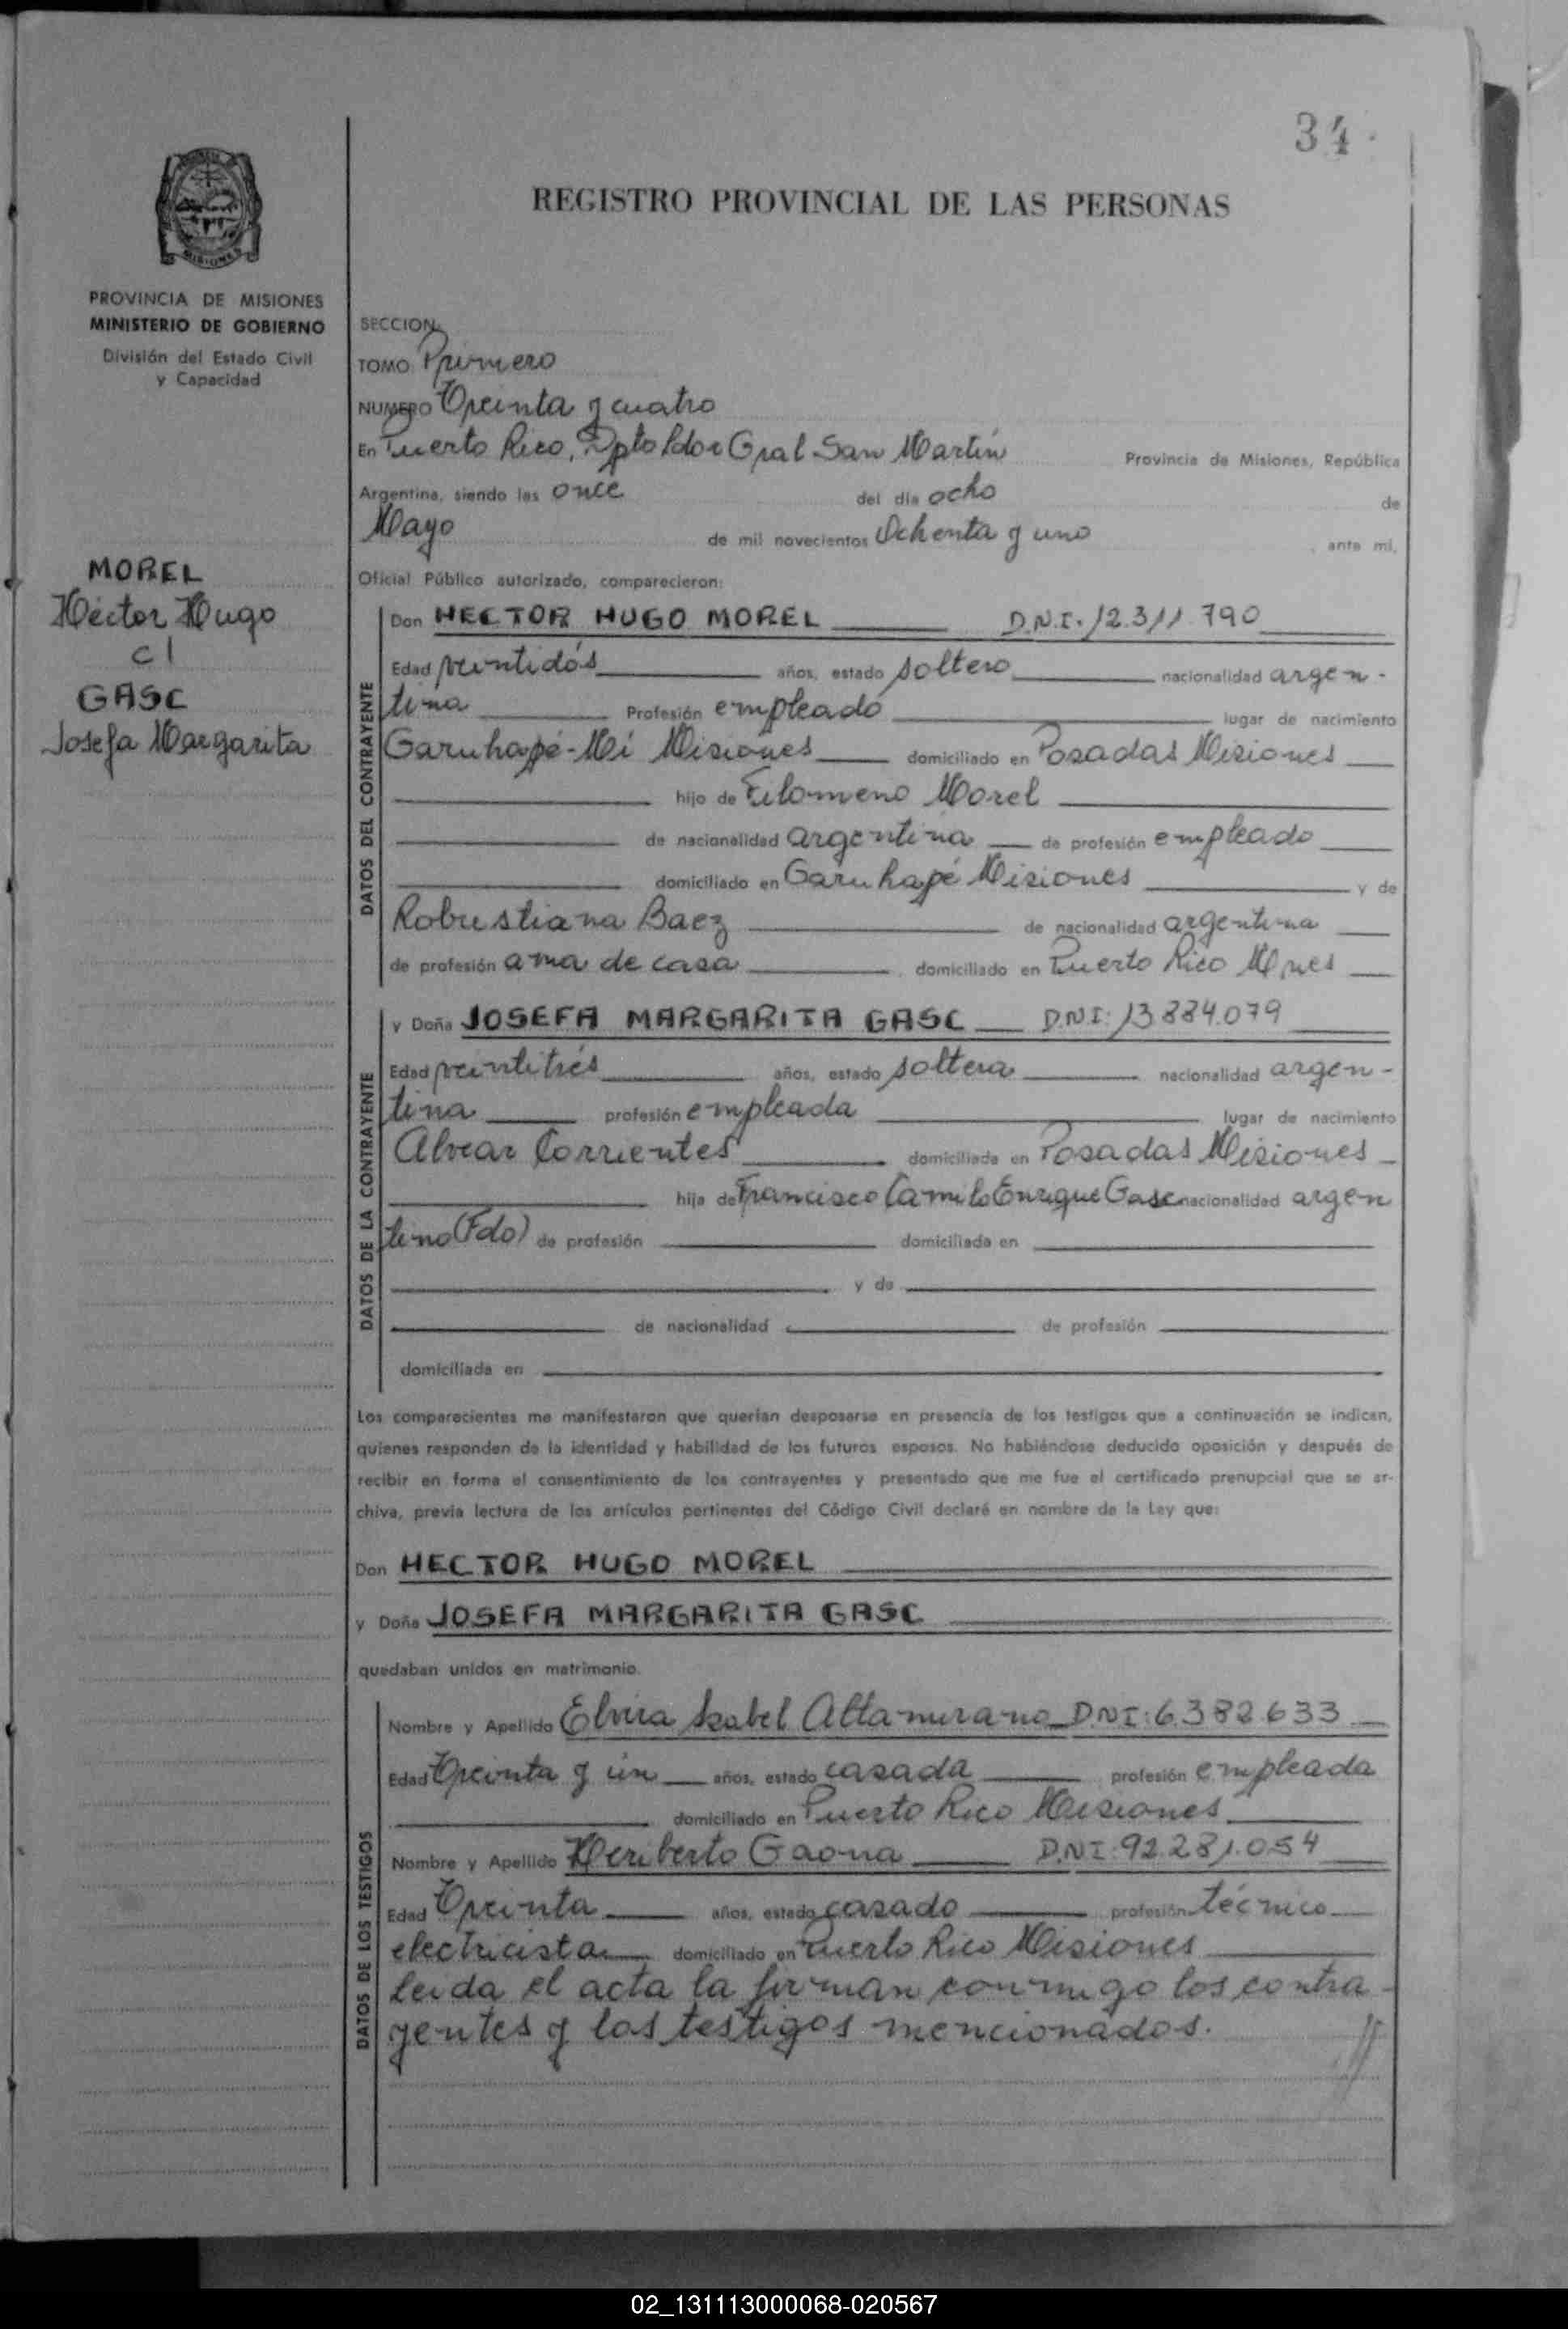 34.
REGISTRO PROVINCIAL DE LAS PERSONAS
MISIONES
PROVINCIA DE MISIONES
MINISTERIO DE GOBIERNO
División del Estado Civil
y Capacidad
MOREL
Héctor Hugo
c/
GASC
Josefa Margarita
SECCION
TOMO Primero
NUMERO Treinta y cuatro
En Puerto Rico, Dpto Ldor Gral San Martín Provincia de Misiones, República
Argentina, siendo las once del día ocho de
Mayo de mil novecientos Ochenta y uno ante mí,
Oficial Público autorizado, comparecieron:
DATOS DEL CONTRAYENTE
Don HECTOR HUGO MOREL D.N.I. 12.311.790
Edad veintidós años, estado soltero nacionalidad argen-
tina Profesión empleado lugar de nacimiento
Garuhapé-Mí Misiones domiciliado en Posadas Misiones
hijo de Filomeno Morel
de nacionalidad argentina de profesión empleado
domiciliado en Garuhapé Misiones y de
Robustiana Baez de nacionalidad argentina
de profesión ama de casa domiciliado en Puerto Rico Mnes
DATOS DE LA CONTRAYENTE
y Doña JOSEFA MARGARITA GASC D.N.I: 13.884.079
Edad veintitrés años, estado soltera nacionalidad argen-
tina profesión empleada lugar de nacimiento
Alvear Corrientes domiciliada en Posadas Misiones
hija de Francisco Camilo Enrique Gasc nacionalidad argen
tino (Fdo) de profesión domiciliado en
y de
de nacionalidad de profesión
domiciliada en
Los comparecientes me manifestaron que querían desposarse en presencia de los testigos que a continuación se indican,
quienes responden de la identidad y habilidad de los futuros esposos. No habiéndose deducido oposición y después de
recibir en forma el consentimiento de los contrayentes y presentado que me fue el certificado prenupcial que se ar-
chiva, previa lectura de los artículos pertinentes del Código Civil declaré en nombre de la Ley que:
Don HECTOR HUGO MOREL
y Doña JOSEFA MARGARITA GASC
quedaban unidos en matrimonio.
DATOS DE LOS TESTIGOS
Nombre y Apellido Elvira Isabel Altamirano D.N.I: 6.382.633
Edad Treinta y un años, estado casada profesión empleada
domiciliado en Puerto Rico Misiones
Nombre y Apellido Heriberto Gaona D.N.I: 92.281.054
Edad Treinta años, estado casado profesión técnico
electricista domiciliado en Puerto Rico Misiones
leida el acta la firman conmigo los contra-
yentes y los testigos mencionados.
02_131113000068-020567